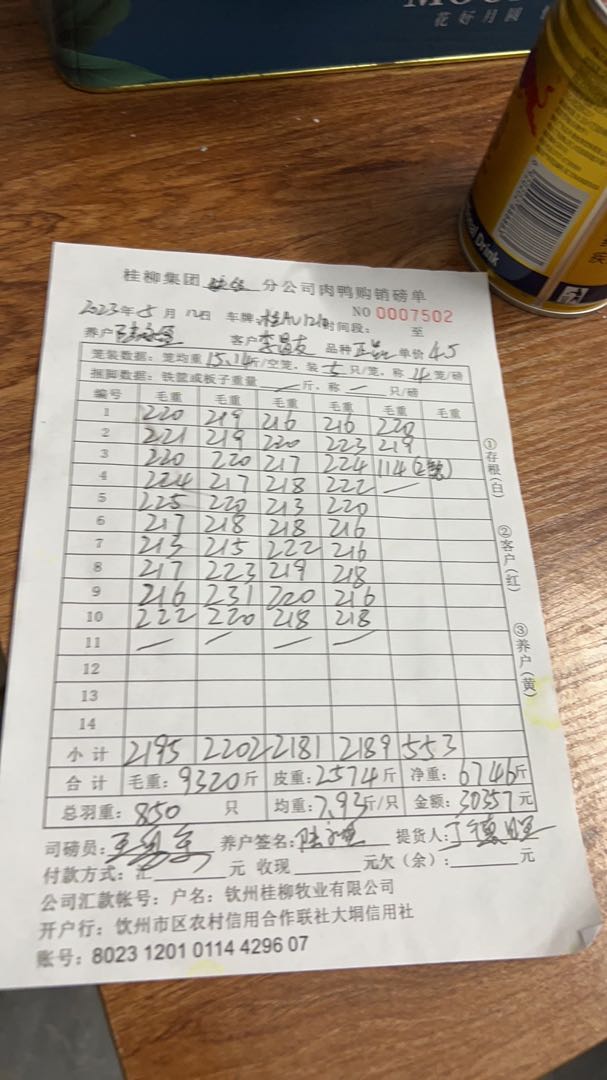 花好月圆
桂柳集团 分公司肉鸭购销磅单
NO 0007502
2023年5月12日 车牌: 时间段: 至
养户 客户 品种正品 单价4.5
笼装数据: 笼均重15.14斤/空笼, 装5只/笼, 称4笼/磅
捆脚数据: 铁筐或板子重量 — 斤, 称 — 只/磅
编号 毛重 毛重 毛重 毛重 毛重 毛重
1 220 219 216 216 220
2 221 219 220 223 219
3 220 220 217 224 114
4 224 217 218 222 —
5 225 220 213 220
6 217 218 218 216
7 213 215 222 216
8 217 223 219 218
9 216 231 220 216
10 222 220 218 218
11 — — — —
12
13
14
小计 2195 2202 2181 2189 553
合计 毛重: 9320斤 皮重: 2574斤 净重: 6746斤
总羽重: 850 只 均重: 7.93斤/只 金额: 30357元
司磅员: 养户签名: 提货人:
付款方式: 汇 元 收现 元欠(余): 元
公司汇款帐号: 户名: 钦州桂柳牧业有限公司
开户行: 钦州市区农村信用合作联社大垌信用社
账号: 8023 1201 0114 4296 07
①存根(白)
②客户(红)
③养户(黄)
Drink